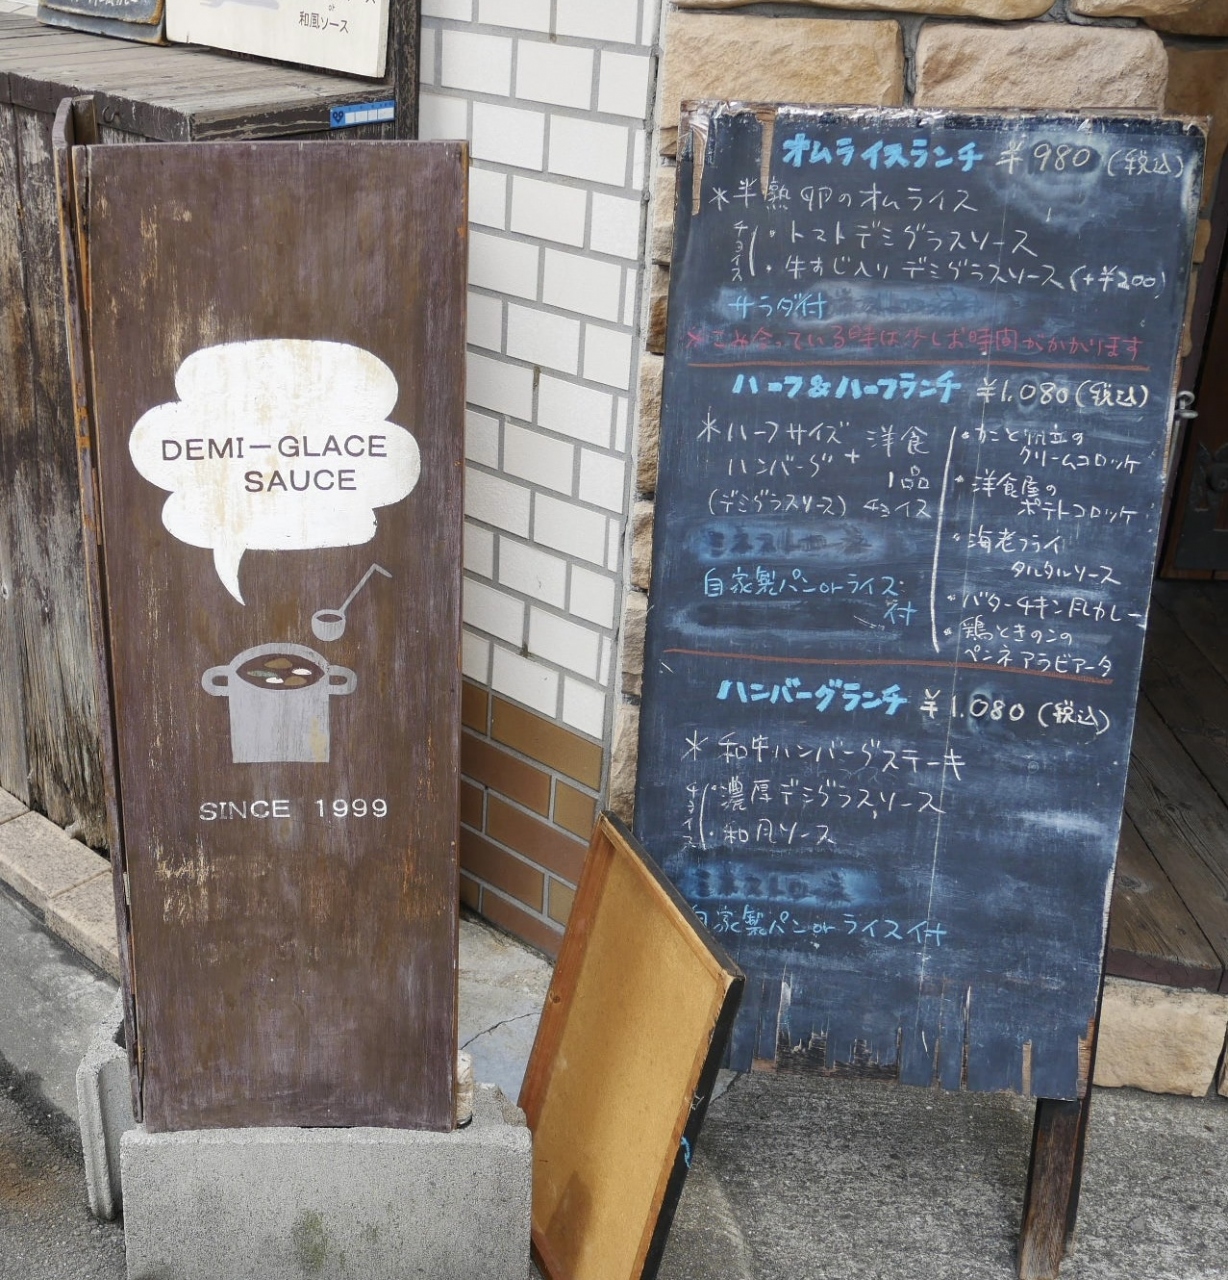 和風ソース
DEMI-GLACE
SAUCE
SINCE 1999
オムライスランチ ¥980(税込)
*半熟卵のオムライス
チョイス
・トマトデミグラスソース
・牛すじ入りデミグラスソース(+¥200)
サラダ付
*こみ合っている時は少しお時間がかかります
ハーフ&ハーフランチ ¥1,080(税込)
*ハーフサイズ + 洋食
ハンバーグ 1品
(デミグラスソース) チョイス
・かにと帆立の
クリームコロッケ
・洋食屋の
ポテトコロッケ
・海老フライ
タルタルソース
・バターチキン風カレー
・鶏ときのこの
ペンネアラビアータ
ミネストローネ
自家製パンorライス
付
ハンバーグランチ ¥1,080(税込)
*和牛ハンバーグステーキ
チョイス
・濃厚デミグラスソース
・和風ソース
ミネストローネ
自家製パンorライス付